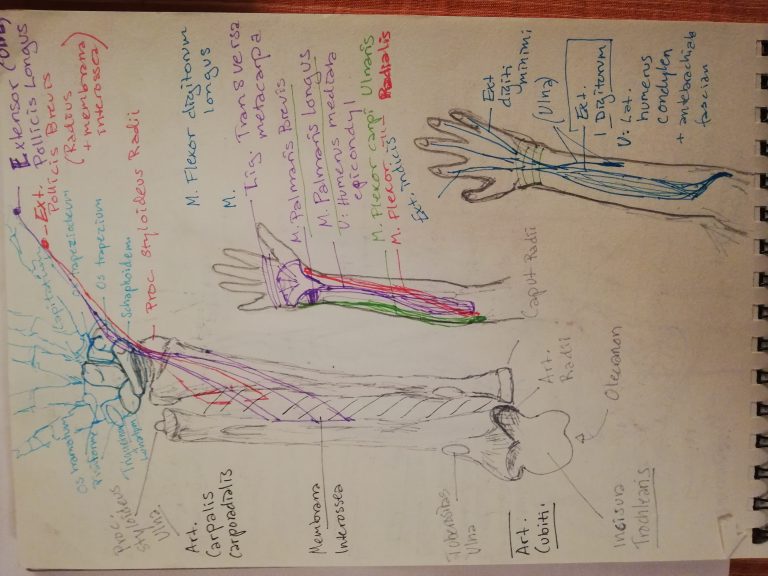 Extensor (Ulna)
Pollicis Longus
Ext.
Pollicis Brevis
(Radius
+ membrana
interossea)
Proc. Styloideus Radii
Os trapezium
M. Flexor digitorum
longus
M.
Lig Transversa
metacarpa
M. Palmaris Brevis
M. Palmaris Longus
U: Humerus mediala
epicondyl
M. Flexor carpi Ulnaris
M. Flexor -"- Radialis
Ext. indicis
Ext
digiti
minimi
(Ulna)
Ext.
Digitorum
U: Lat.
humerus
condylen
+ antebrachiala
fascian
Caput Radii
Proc.
Styloideus
Ulna
Art.
Carpalis
Carporadialis
Membrana
Interossea
Tuberositas
Ulna
Art.
Cubiti
Art.
Radii
Olecranon
Incisura
Trochlearis